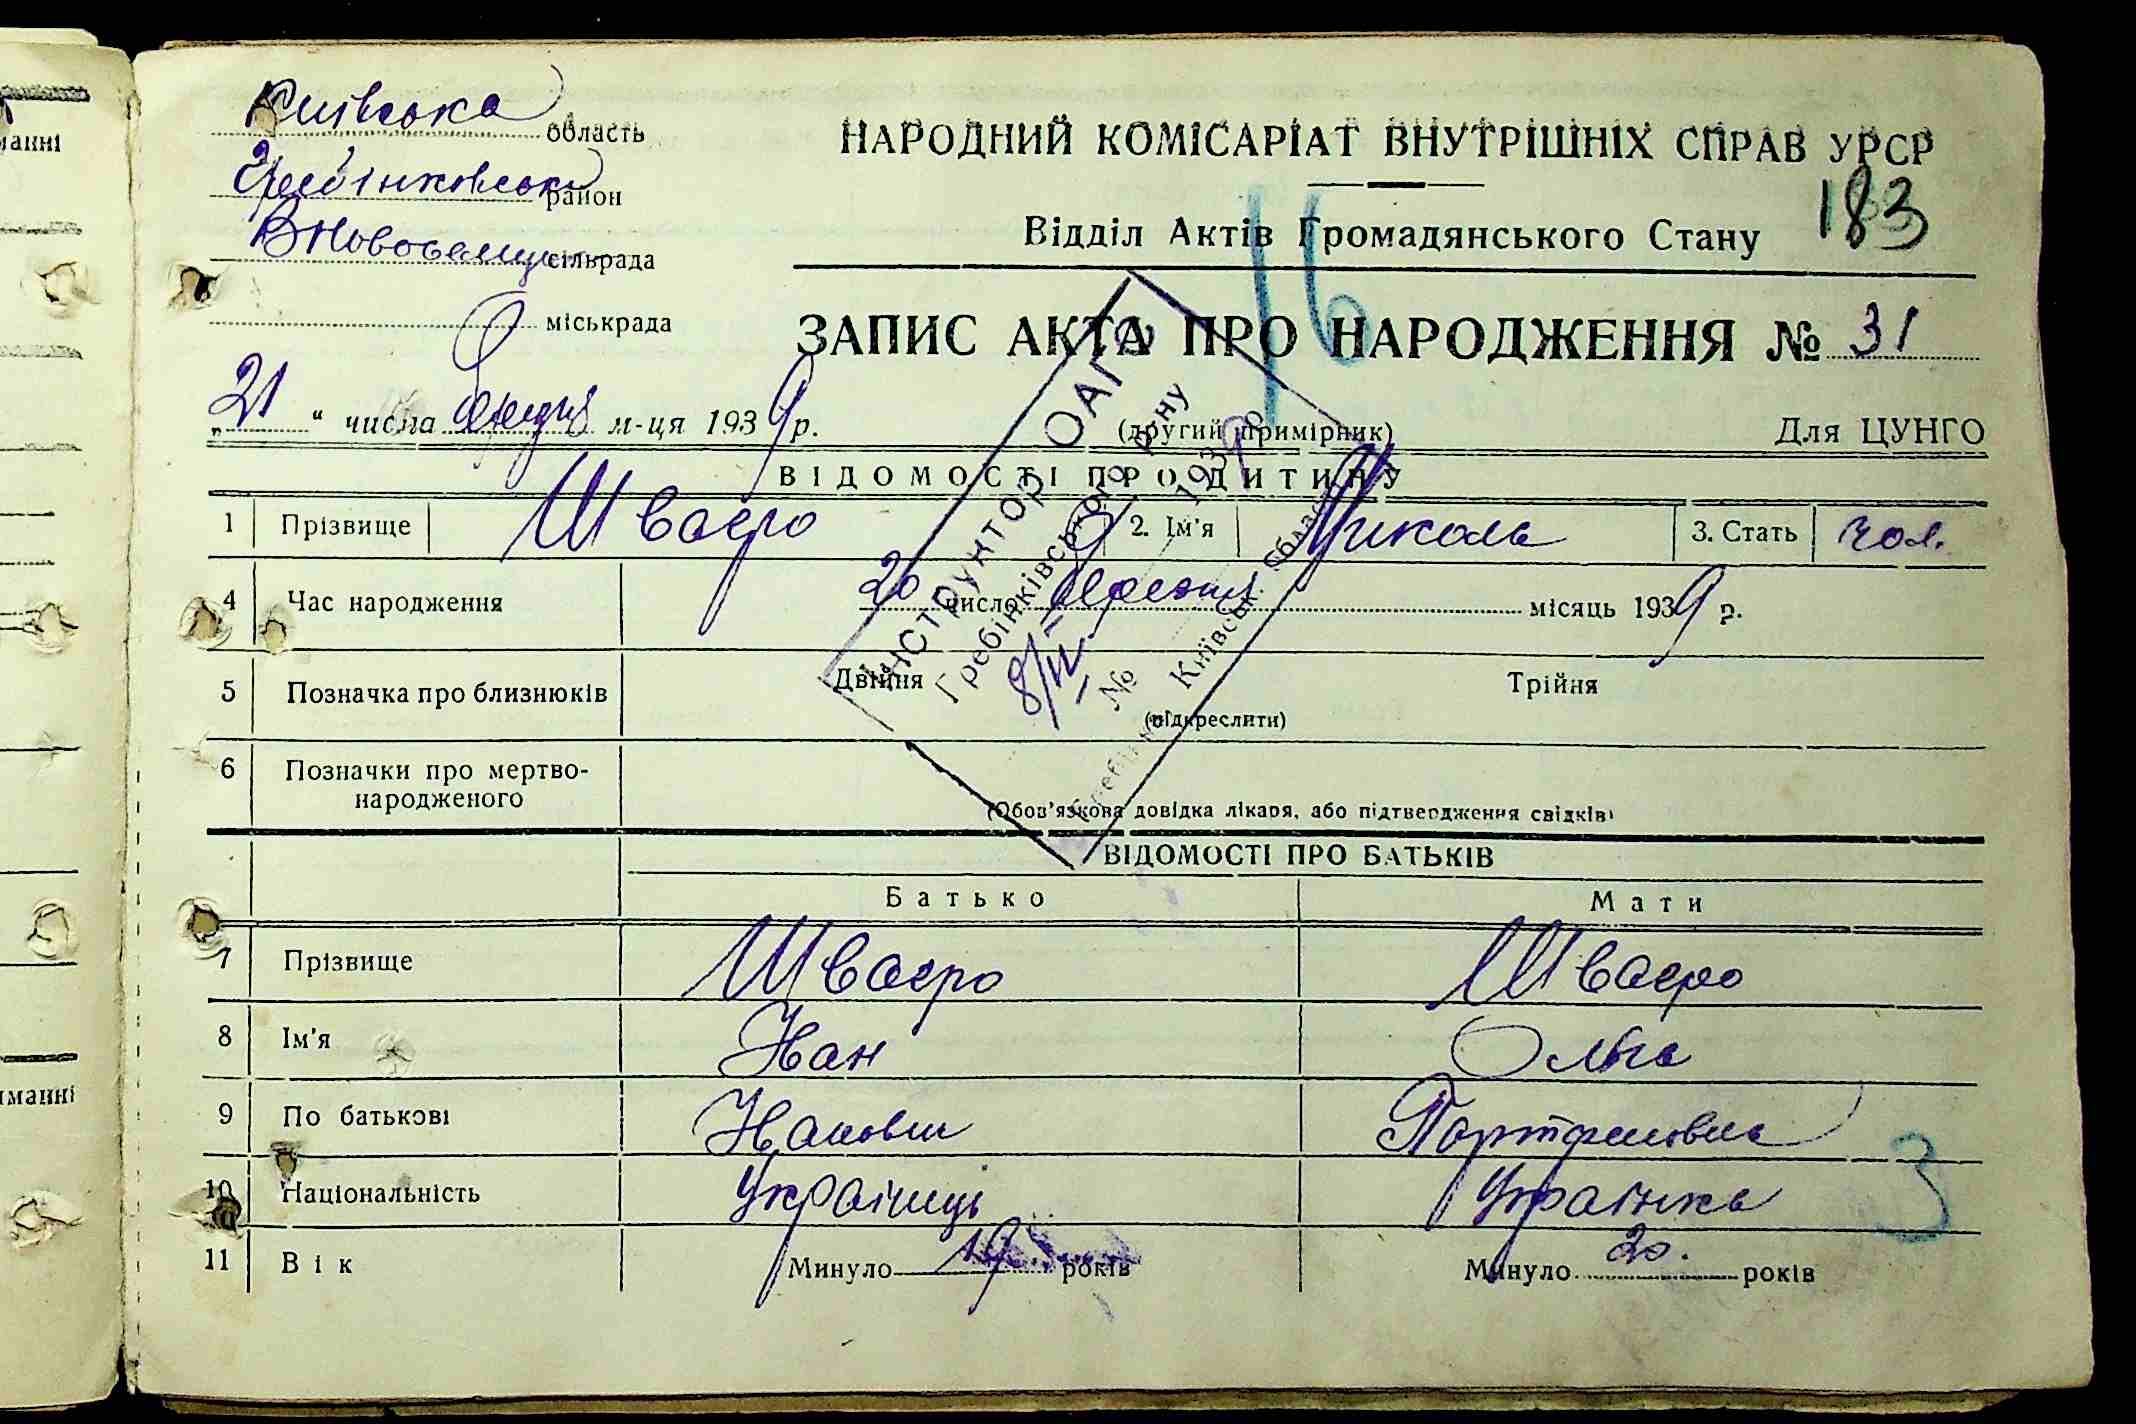 Київська область
Гребінковська район
ВНовоселицька сільрада
міськрада
НАРОДНИЙ КОМІСАРІАТ ВНУТРІШНІХ СПРАВ УРСР
183
Відділ Актів Громадянського Стану
16
ЗАПИС АКТА ПРО НАРОДЖЕННЯ № 31
„21“ числа м-ця 1939 р.
(другий примірник)
Для ЦУНГО
ВІДОМОСТІ ПРО ДИТИНУ
1 Прізвище Шваєро 2. Ім'я Микола 3. Стать чол.
4 Час народження 20 число місяць 1939 р.
5 Позначка про близнюків Двійня Трійня
(підкреслити)
6 Позначки про мертво-
народженого
(Обов'язкова довідка лікаря, або підтвердження свідків)
Інструктор ОАГС
Гребінківського р ну
8/II
№ 1939 р
Київськ. Області
ВІДОМОСТІ ПРО БАТЬКІВ
Батько Мати
7 Прізвище Шваєро Шваєро
8 Ім'я Іван Ольга
9 По батькові Іванович
10 Національність Українець Українка
3
11 Вік Минуло 19 років Минуло 20. років